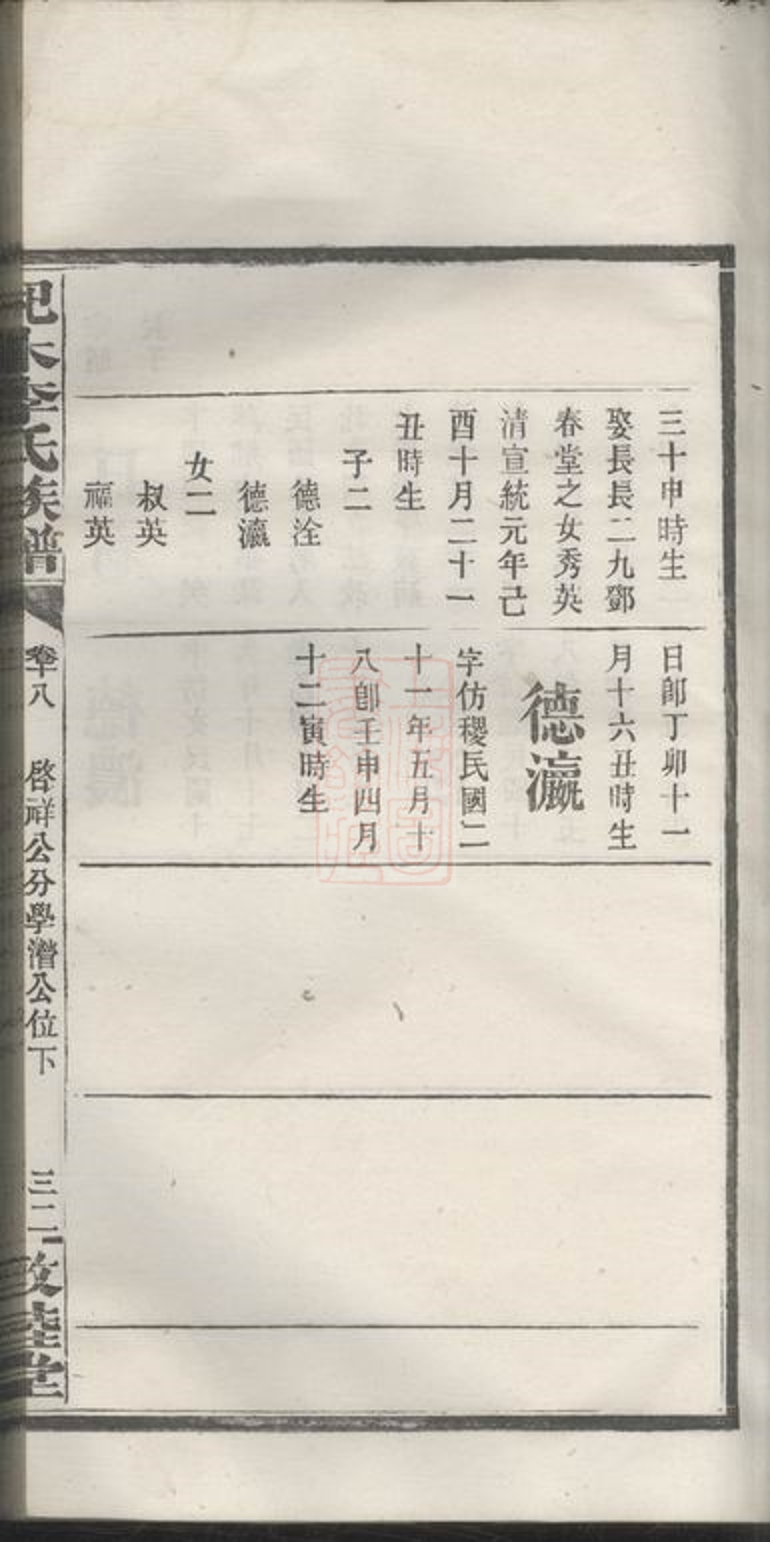 三十申時生
娶長長二九鄧
春堂之女秀英
清宣統元年己
酉十月二十一
丑時生
子二
德洤
德瀛
女二
叔英
福英
日卽丁卯十一
月十六丑時生
德瀛
字仿稷民國二
十一年五月十
八卽壬申四月
十二寅時生
李氏族譜
卷十八
啓祥公分學濳公位下
三二
敦睦堂